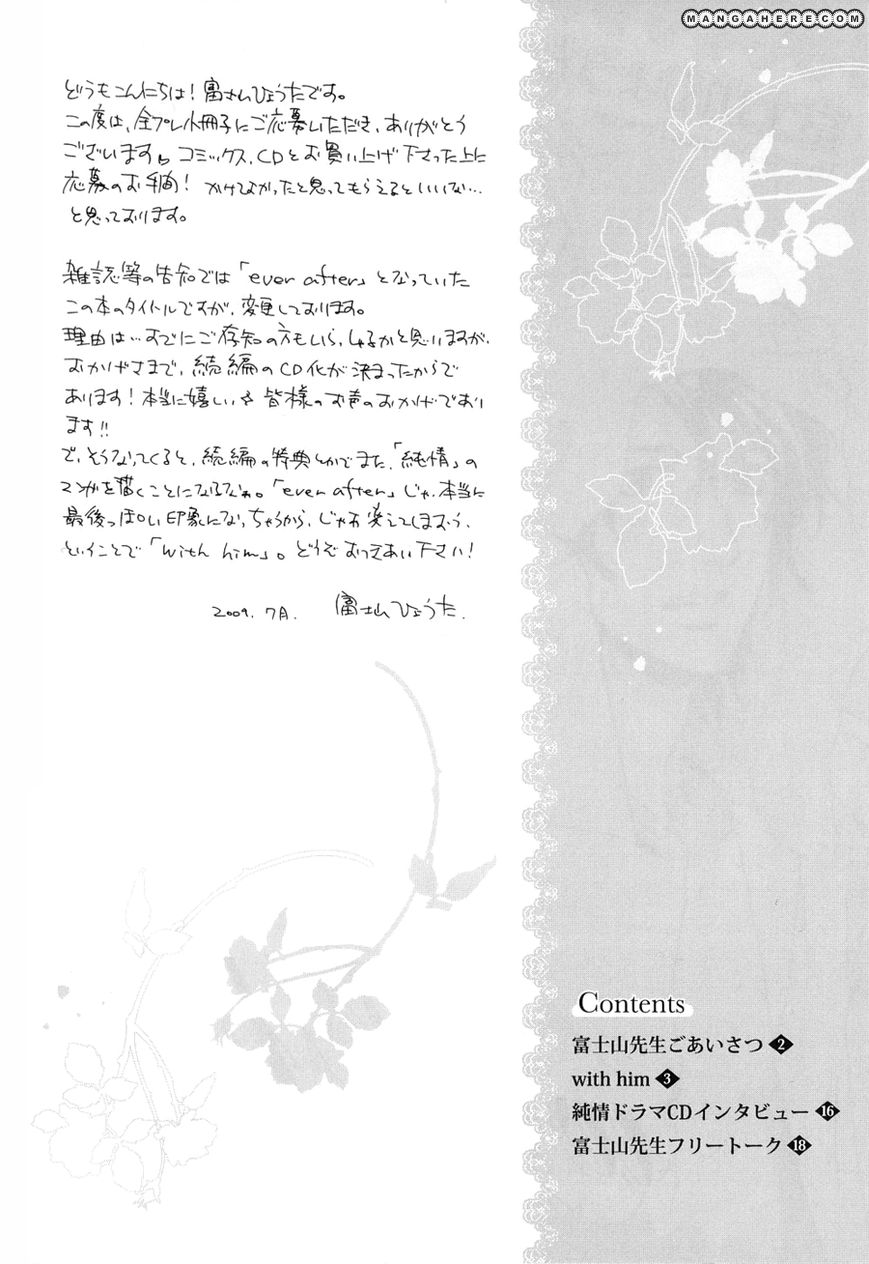 MANGAHERE.COM
どうもこんにちは！富士山ひょうたです。
この度は、全プレ小冊子にご応募いただき、ありがとう
ございます。コミックス、CDとお買い上げ下さった上に
応募のお手間！かけてよかったと思ってもらえるといいな…
と思っております。
雑誌等の告知では「ever after」となっていた
この本のタイトルですが、変更しております。
理由は…すでにご存知の方もいらっしゃるかと思いますが、
おかげさまで、続編のCD化が決まったからで
あります！本当に嬉しい 皆様のお声のおかげであり
ます!!
で、そうなってくると、続編の特典とかでまた「純情」の
マンガを描くことになるなぁ。「ever after」じゃ、本当に
最後っぽい印象になっちゃうから、じゃあ変えてしまおう、
ということで「with him」。どうぞおつきあい下さい！
2009. 7月. 富士山ひょうた.
Contents
富士山先生ごあいさつ 2
with him 3
純情ドラマCDインタビュー 16
富士山先生フリートーク 18